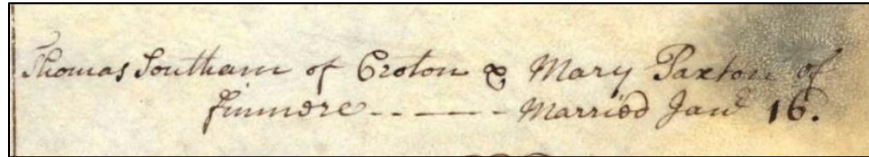 Thomas Southam of Croton & Mary Paxton of
finmore - - — - - Married Jan.^y 16.